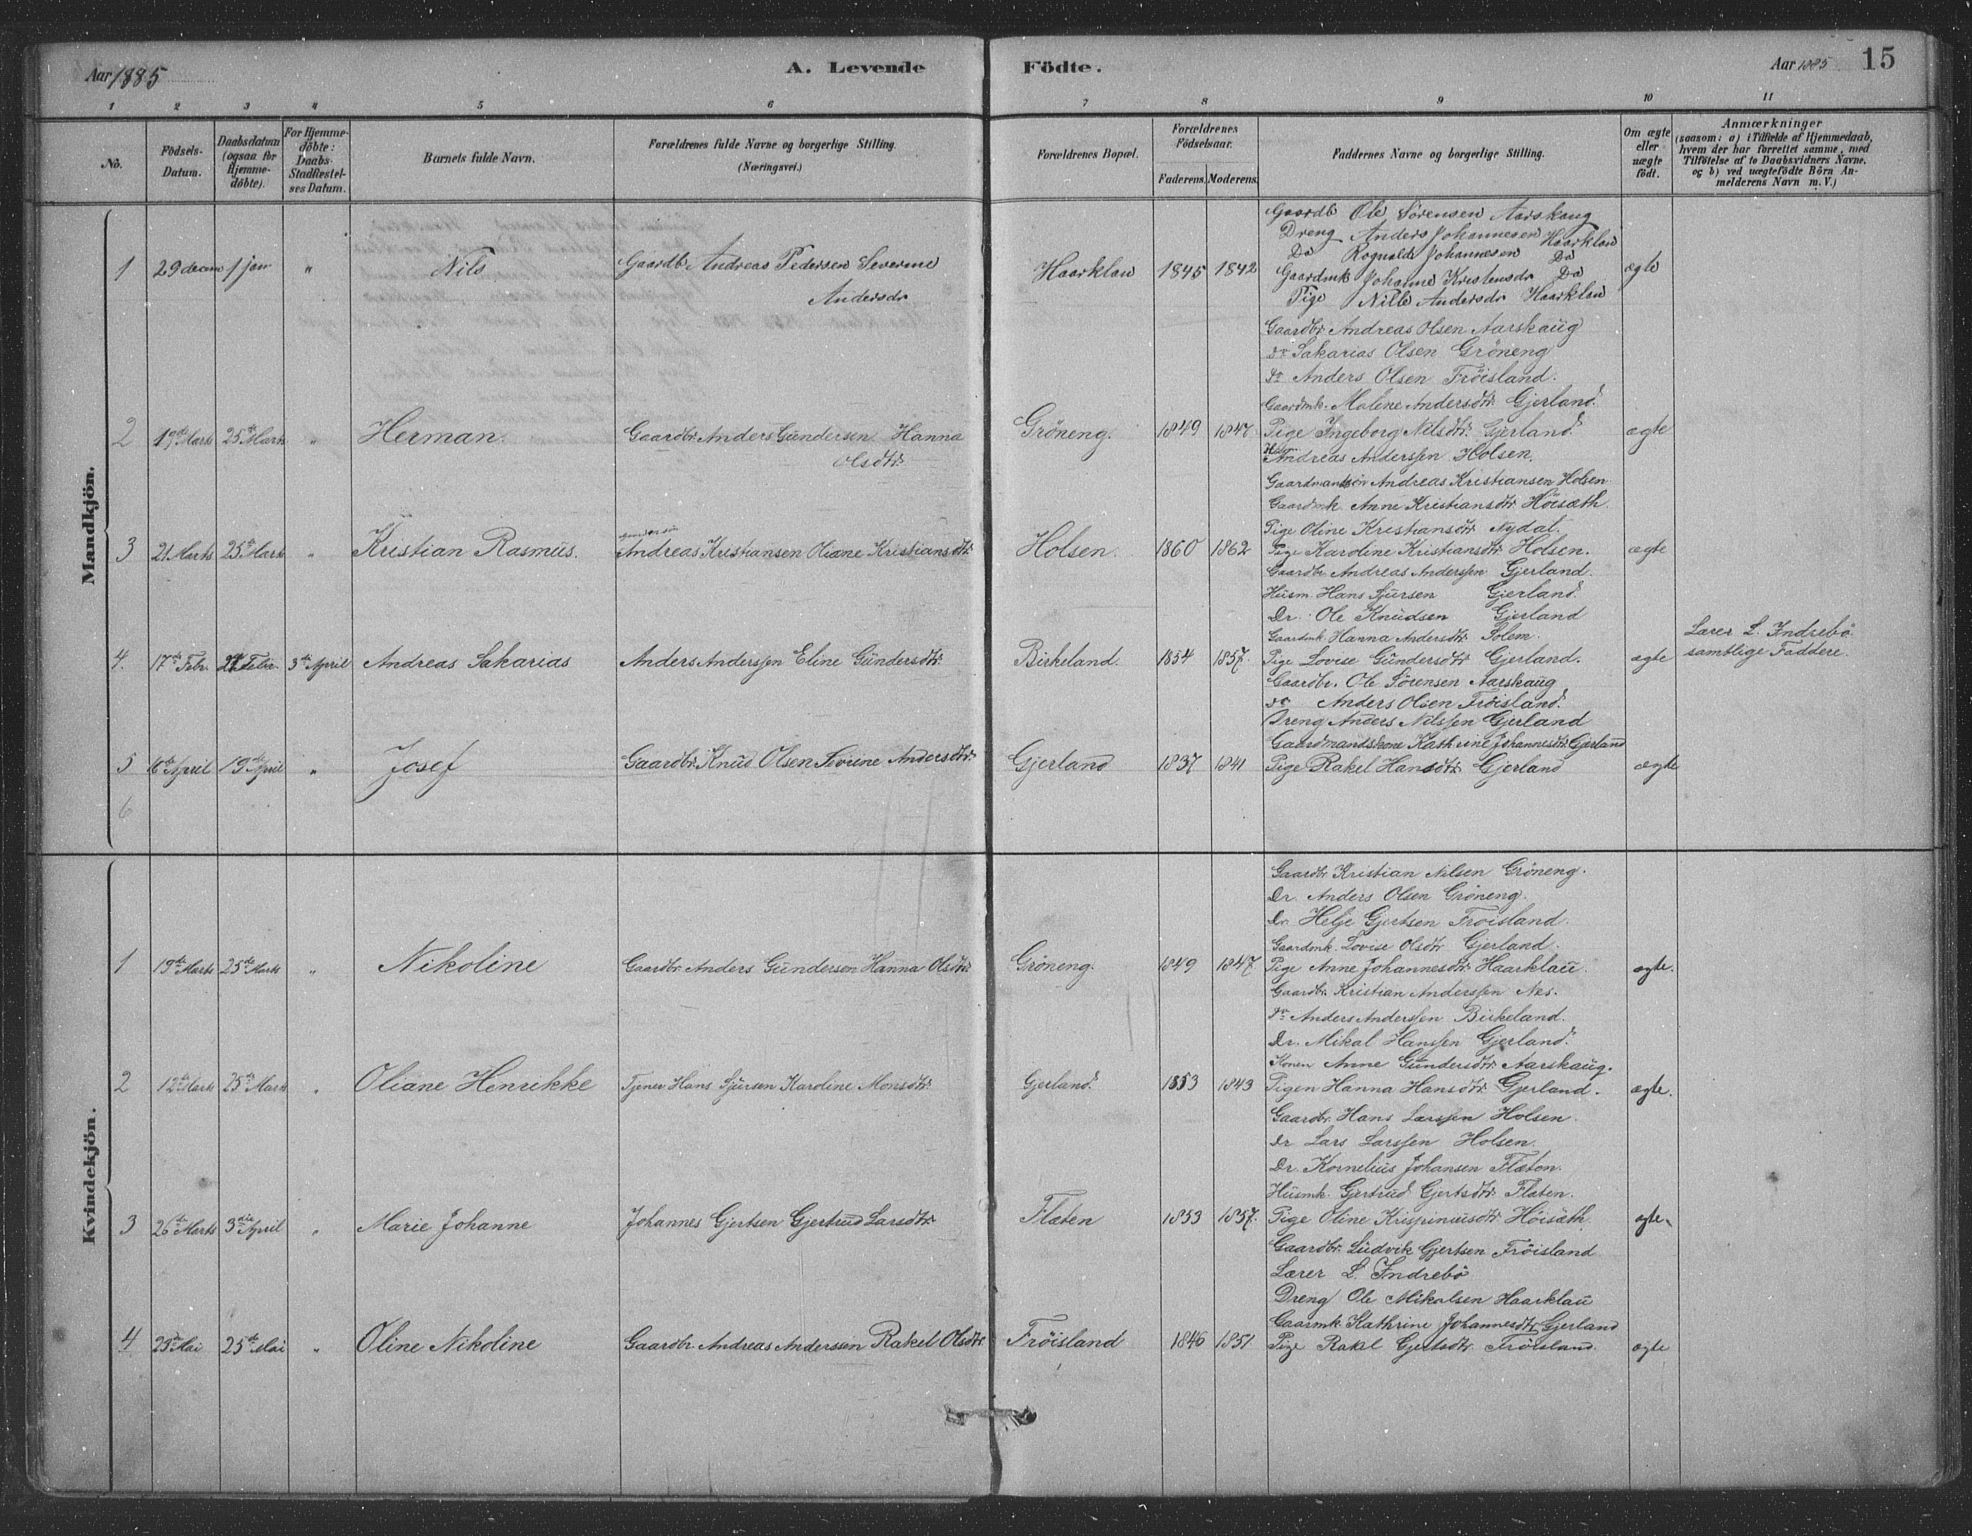 Aar 1885
A. Levende Födte.
Aar 1885 15
1 2 3 4 5 6 7 8 9 10 11
No.
Födsels-Datum.
Daabsdatum (ogsaa for Hjemme-döbte).
For Hjemme-döbte: Daabs-Stadfestel-ses Datum.
Barnets fulde Navn.
Forældrenes fulde Navne og borgerlige Stilling. (Næringsvei.)
Forældrenes Bopæl.
Forældrenes Födselsaar.
Faderens. Moderens.
Faddernes Navne og borgerlige Stilling.
Om ægte eller uægte födt.
Anmærkninger
(saasom: a) i Tilfælde af Hjemmedaab,
hvem der har forrettet samme, med
Tilföielse af to Daabsvidners Navne,
og b) ved uægtefödte Börn An-
melderens Navn m. V.)
Mandkjön.
Gaardb Ole Sörensen Aarskaug
Dreng Anders Johannesen Haarklau
Do Rognald Johannesen Do
1 29 decem 1 jan " Nils Gaardb. Andreas Pedersen Severine Haarklau 1845 1842 Gaardmk Johanne Kristensdr Do ægte
Andersdr Pige Nille Andersdr Haarklau
Gaardbr Andreas Olsen Aarskaug
do Sakarias Olsen Gröneng
do Anders Olsen Fröisland.
Gaardmk. Malene Andersdtr. Gjerland.
2 19de Marts 25de Marts " Herman. Gaardbr. Anders Gundersen Hanna Gröneng. 1849 1847. Pige Ingeborg Nilsdtr. Gjerland. ægte
Olsdtr. Andreas Anderssen Holsen.
Gaardmandssön Andreas Kristiansen Holsen
Gaardmk Anne Kristiansdtr Höisæth.
Pige Oline Kristiansdtr Nydal.
3 21 Marts 25de Marts " Kristian Rasmus. Andreas Kristiansen Oliane Kristiansdtr Holsen. 1860 1862 Pige Karoline Kristiansdtr Holsen. ægte
Gaardbr Andreas Anderssen Gjerland.
Husm. Hans Sjursen Gjerland.
Dr. Ole Knudsen Gjerland
Gaardmk Hanna Andersdtr Solem.
4. 17de Febr. Febr. 3die April Andreas Sakarias Anders Anderssen Eline Gundersdtr Birkeland. 1854 1857. Pige Lovise Gundersdtr Gjerland. ægte Lærer L. Indrebö
samtlige Faddere.
Gaardbr. Ole Sörensen Aarskaug
do Anders Olsen Fröisland.
Dreng Anders Nilssen Gjerland
Gaardmandskone Kathrine Johannesdtr Gjerland
5 6te April 19de April " Josef Gaardbr. Knud Olsen Sevrine Andersdtr. Gjerland 1837 1841 Pige Rakel Hansdtr Gjerland ægte
6
Kvindekjön.
Gaardbr Kristian Nilsen Gröneng.
Dr. Anders Olsen Gröneng.
Dr. Helje Gjertsen Fröisland.
Gaardmk. Lovise Olsdtr Gjerland.
1 19de Marts 25de Marts " Nikoline Gaardbr. Anders Gundersen Hanna Olsdtr Gröneng. 1849 1847 Pige Anne Johannesdtr Haarklau. ægte.
Gaardbr. Kristian Anderssen Nes.
do Anders Anderssen Birkeland.
Dr. Mikal Hanssen Gjerland.
Konen Anne Gundersdtr Aarskaug.
2 12te Marts 25de Marts " Oliane Henrikke Tjener Hans Sjursen Karoline Monsdtr Gjerland. 1853 1843 Pigen Hanna Hansdtr Gjerland. ægte.
Gaardbr. Hans Larssen Holsen.
Dr Lars Larssen Holsen.
Dr. Kornelius Johansen Flæten.
Husmk. Gjertrud Gjertsdtr Flæten.
3 26de Marts 3die April " Marie Johanne Johannes Gjertsen Gjertrud Larsdtr Flæten 1853 1857. Pige Oline Krispinusdtr Höisæth ægte.
Gaardbr. Ludvik Gjertsen Fröisland
Lærer L. Indrebö
Dreng Ole Mikalsen Haarklau
Gaarmk Kathrine Johannesdtr Gjerland
4 25de Mai " Oline Nikoline Gaardbr. Andreas Anderssen Rakel Olsdtr Fröisland 1846 1851 Pige Rakel Gjertsdtr Fröisland. ægte